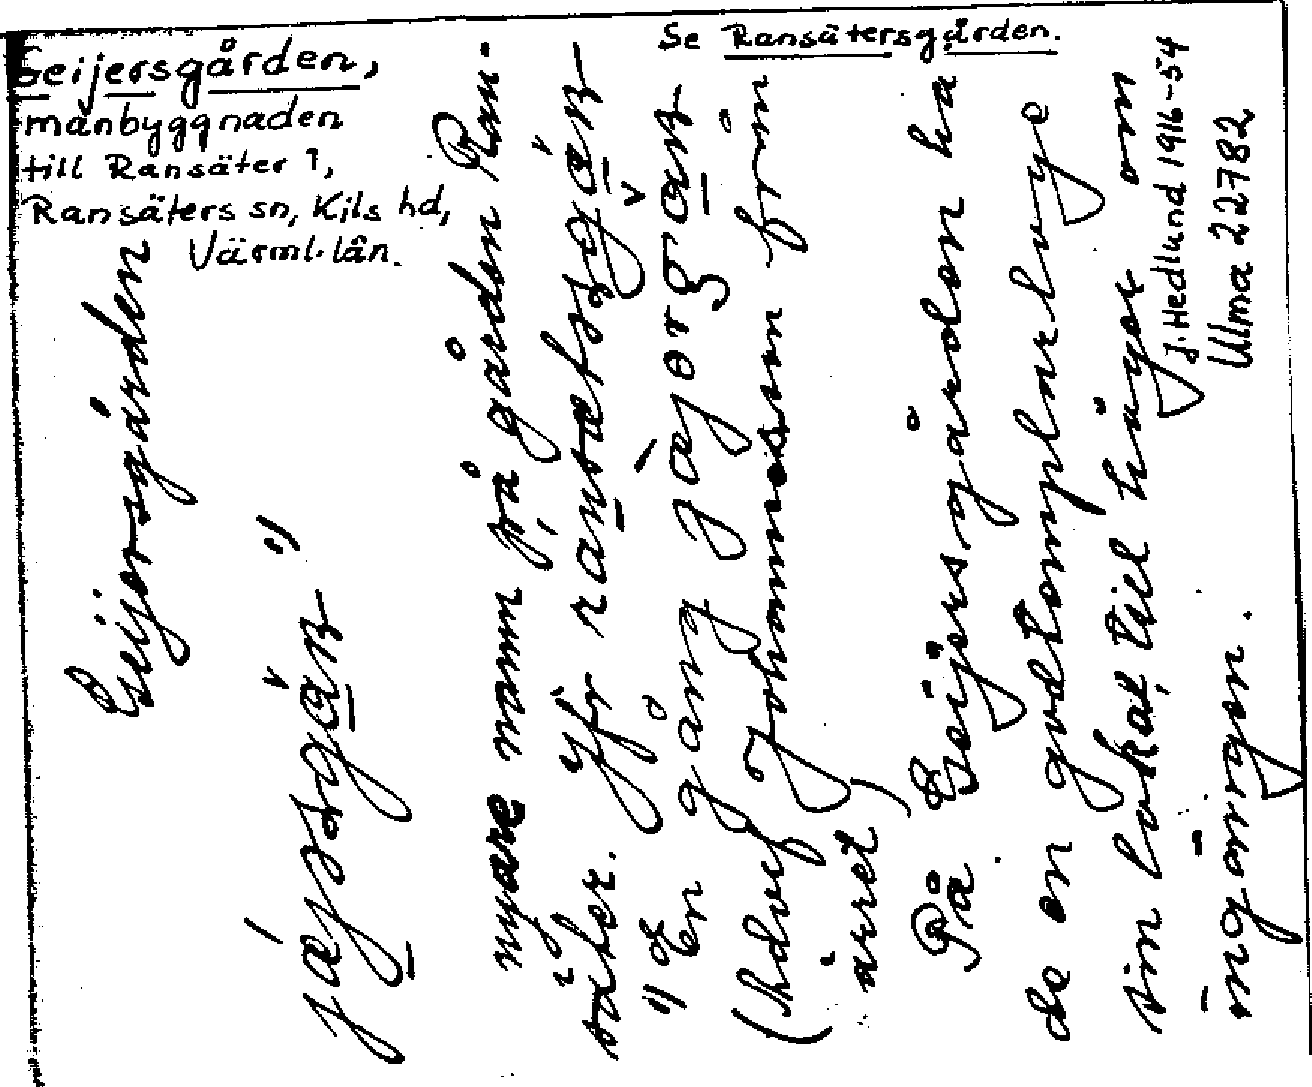 Geijersgården,
manbyggnaden
till Ransäter 1,
Ransäters sn, Kils hd,
Värml. län.
Se Ransätersgården.
Geijersgården
jæjəsgán 1)
nyare namn på gården Ran-
säter. Jfr ransætsgán
1) En gång jæjərsgan
(hdvf Johannesson från
året)
På Geijersgården ha
de en godtemplarloge
sin lokal till höger om
ingången.
J. Hedlund 1916-54
Ulma 22782